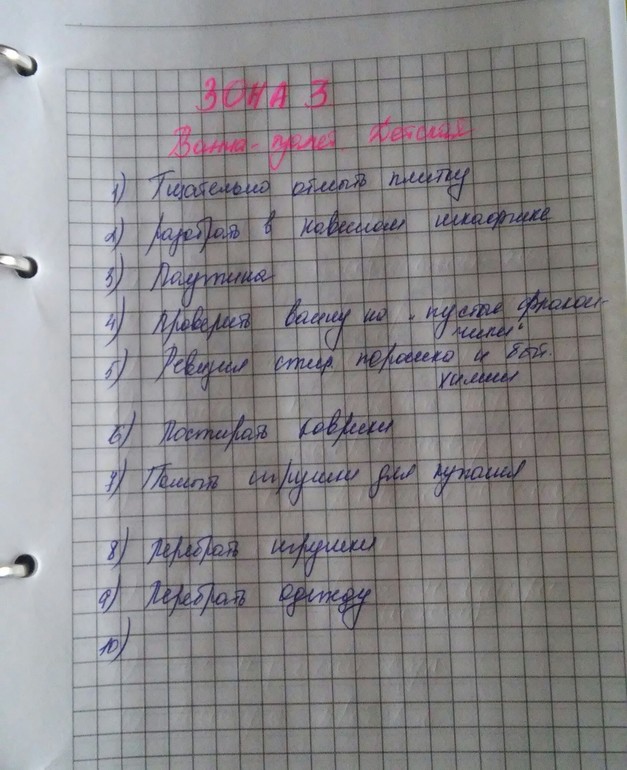 ЗОНА 3
Ванна-туалет Детская
1) Тщательно отмыть плитку
2) Разобрать в навесном шкафчике
3) Паутина
4) Проверить ванну на "пустые флакон-
чики"
5) Ревизия стир. порошка и быт.
химии
6) Постирать коврики
7) Помыть игрушки для купания
8) Перебрать игрушки
9) Перебрать одежду
10)